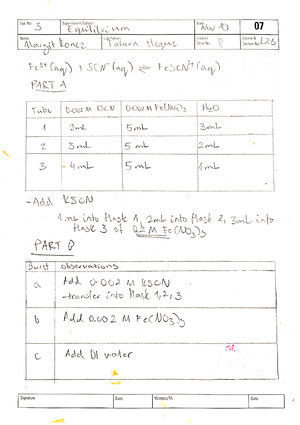 Exp. No. 3 Experiment/Subject Equilibrium Date Nov 10 07
Name Lab Partner Locker/Desk No. 8 Course & Section No. L23
Fe³⁺(aq) + SCN⁻(aq) ⇌ FeSCN²⁺(aq)
PART A
Tube 0.002M KSCN 0.002M Fe(NO₃)₃ H₂O
1 2mL 5mL 3mL
2 3mL 5mL 2mL
3 4mL 5mL 1mL
-Add KSCN
1mL into flask 1, 2mL into flask 2, 3mL into
flask 3 of 0.2 M Fe(NO₃)₃
PART B
Buret observations
a Add 0.002 M KSCN
-transfer into flask 1,2,3
b Add 0.002 M Fe(NO₃)₃
c Add DI water
Signature Date Witness/TA Date